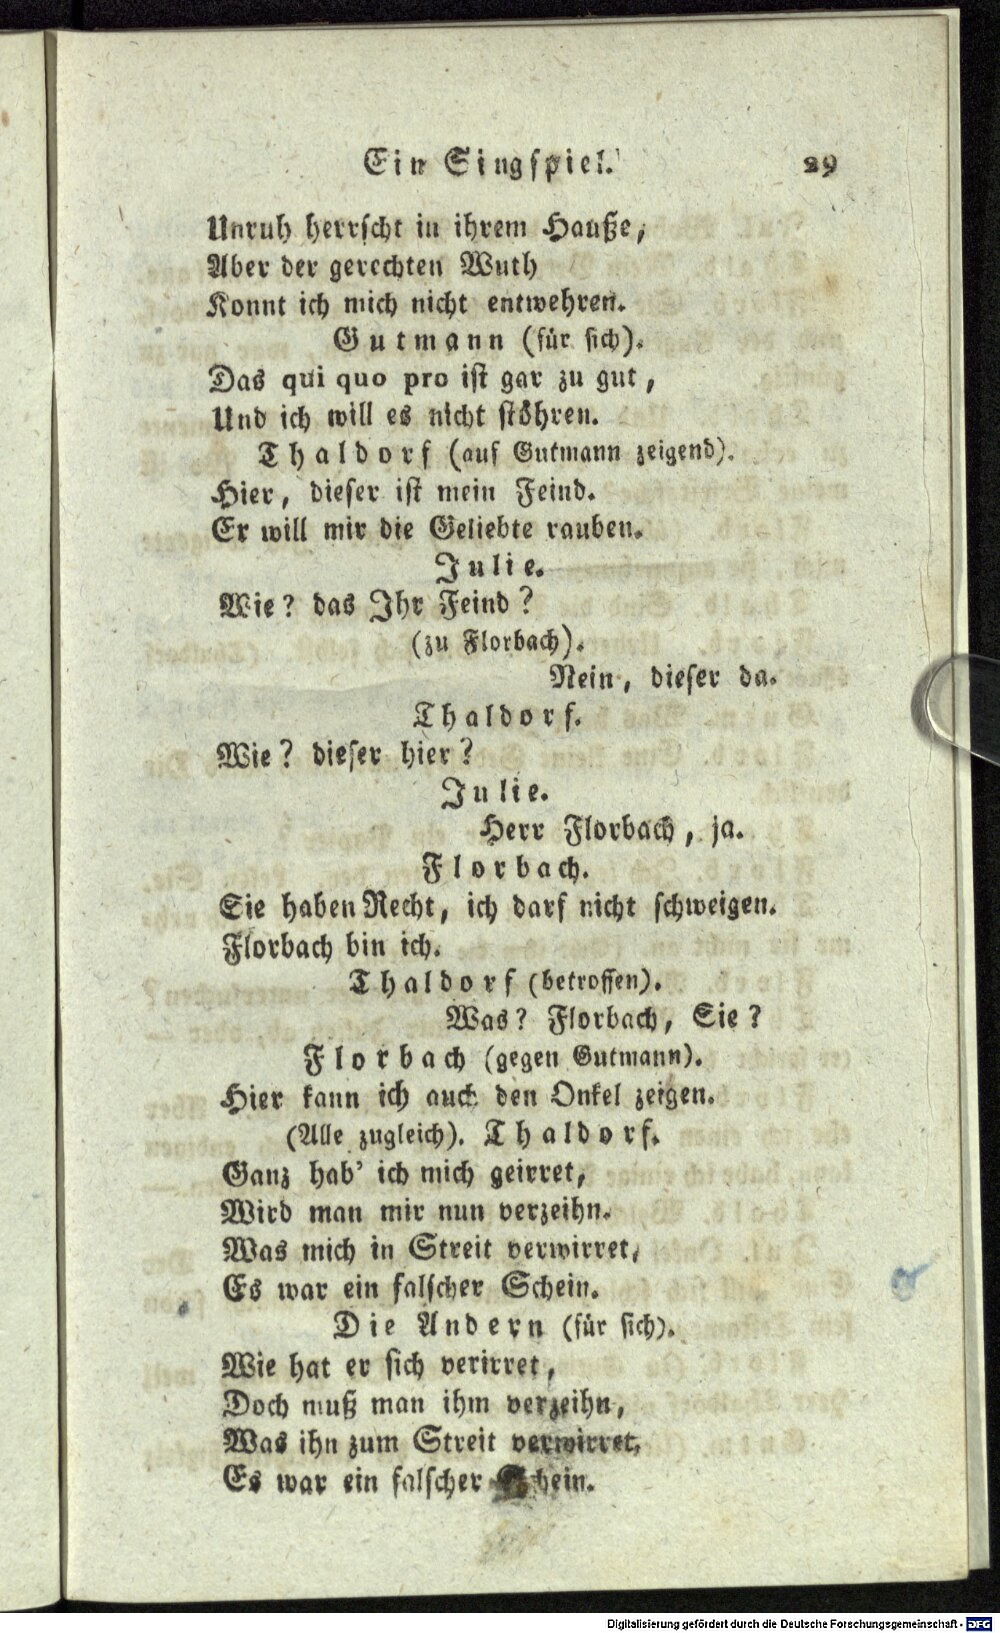 Ein Singspiel. 29
Unruh herrscht in ihrem Hauße,
Aber der gerechten Wuth
Konnt ich mich nicht entwehren.
Gutmann (für sich).
Das qui quo pro ist gar zu gut,
Und ich will es nicht stöhren.
Thaldorf (auf Gutmann zeigend).
Hier, dieser ist mein Feind.
Er will mir die Geliebte rauben.
Julie.
Wie? das Ihr Feind?
(zu Florbach).
Nein, dieser da.
Thaldorf.
Wie? dieser hier?
Julie.
Herr Florbach, ja.
Florbach.
Sie haben Recht, ich darf nicht schweigen.
Florbach bin ich.
Thaldorf (betroffen).
Was? Florbach, Sie?
Florbach (gegen Gutmann).
Hier kann ich auch den Onkel zeigen.
(Alle zugleich). Thaldorf.
Ganz hab' ich mich geirret,
Wird man mir nun verzeihn.
Was mich in Streit verwirret,
Es war ein falscher Schein.
Die Andern (für sich).
Wie hat er sich verirret,
Doch muß man ihm verzeihn,
Was ihn zum Streit verwirret,
Es war ein falscher Schein.
Digitalisierung gefördert durch die Deutsche Forschungsgemeinschaft - DFG